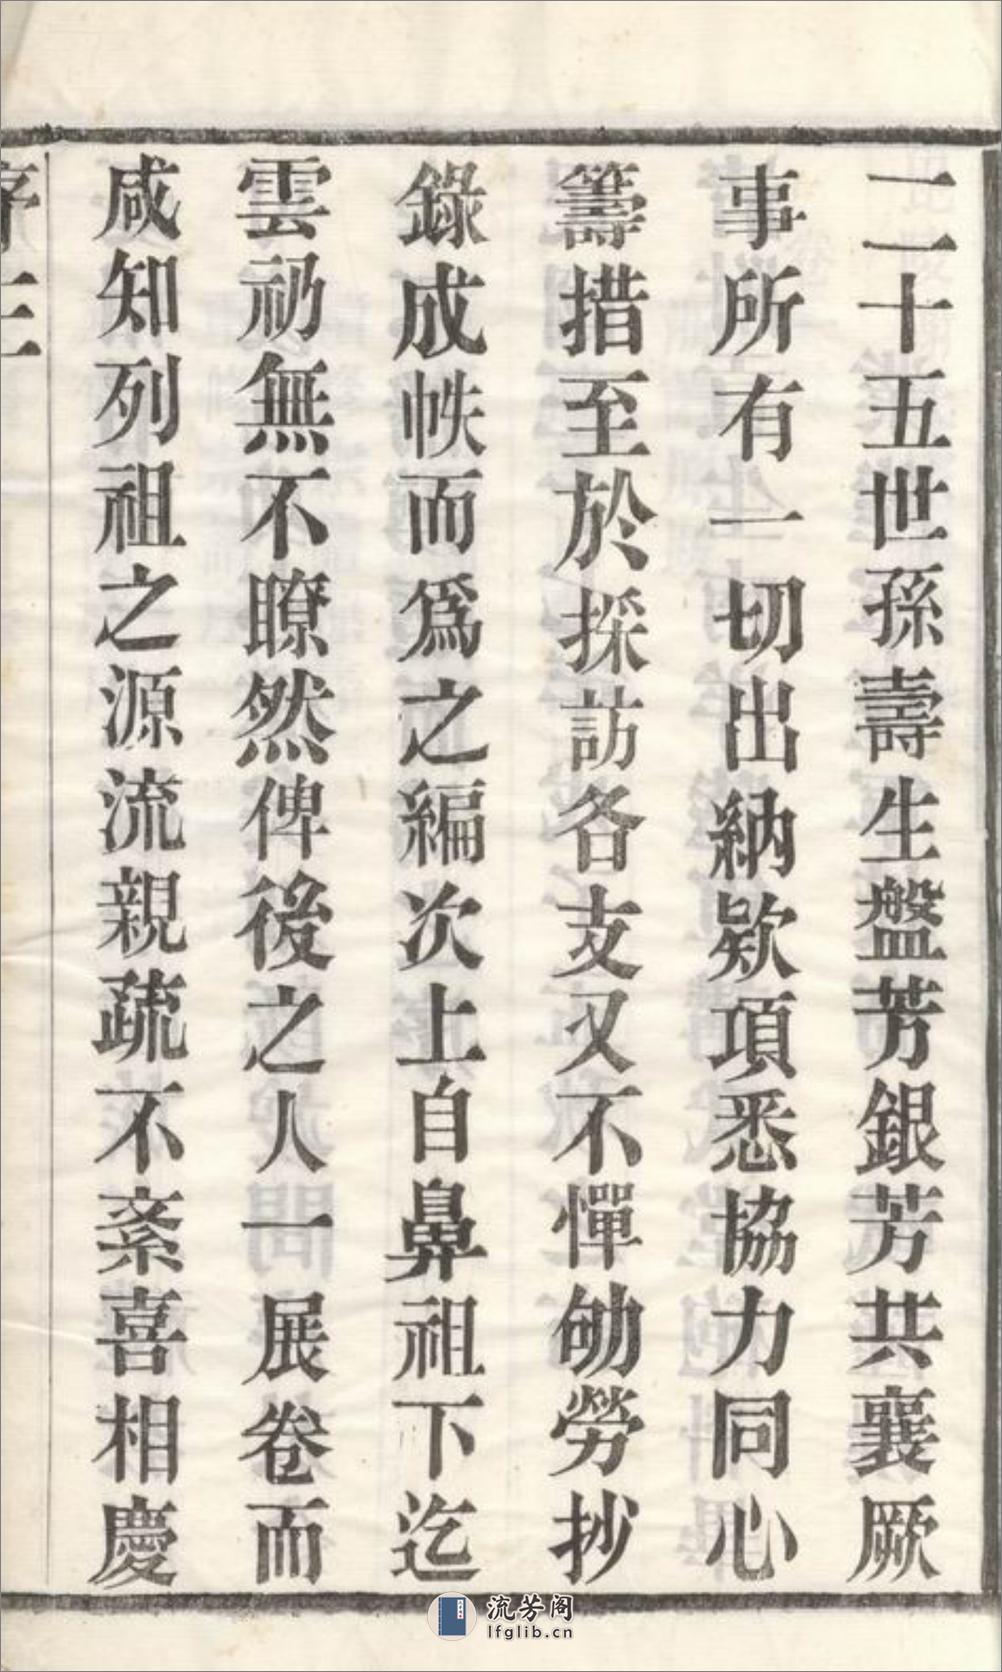 二十五世孫壽生盤芳銀芳共襄厥
事所有一切出納欵項悉協力同心
籌措至於採訪各支又不憚劬勞抄
錄成帙而爲之編次上自鼻祖下迄
雲礽無不瞭然俾後之人一展卷而
咸知列祖之源流親疏不紊喜相慶
序三
流芳阁
lfglib.cn